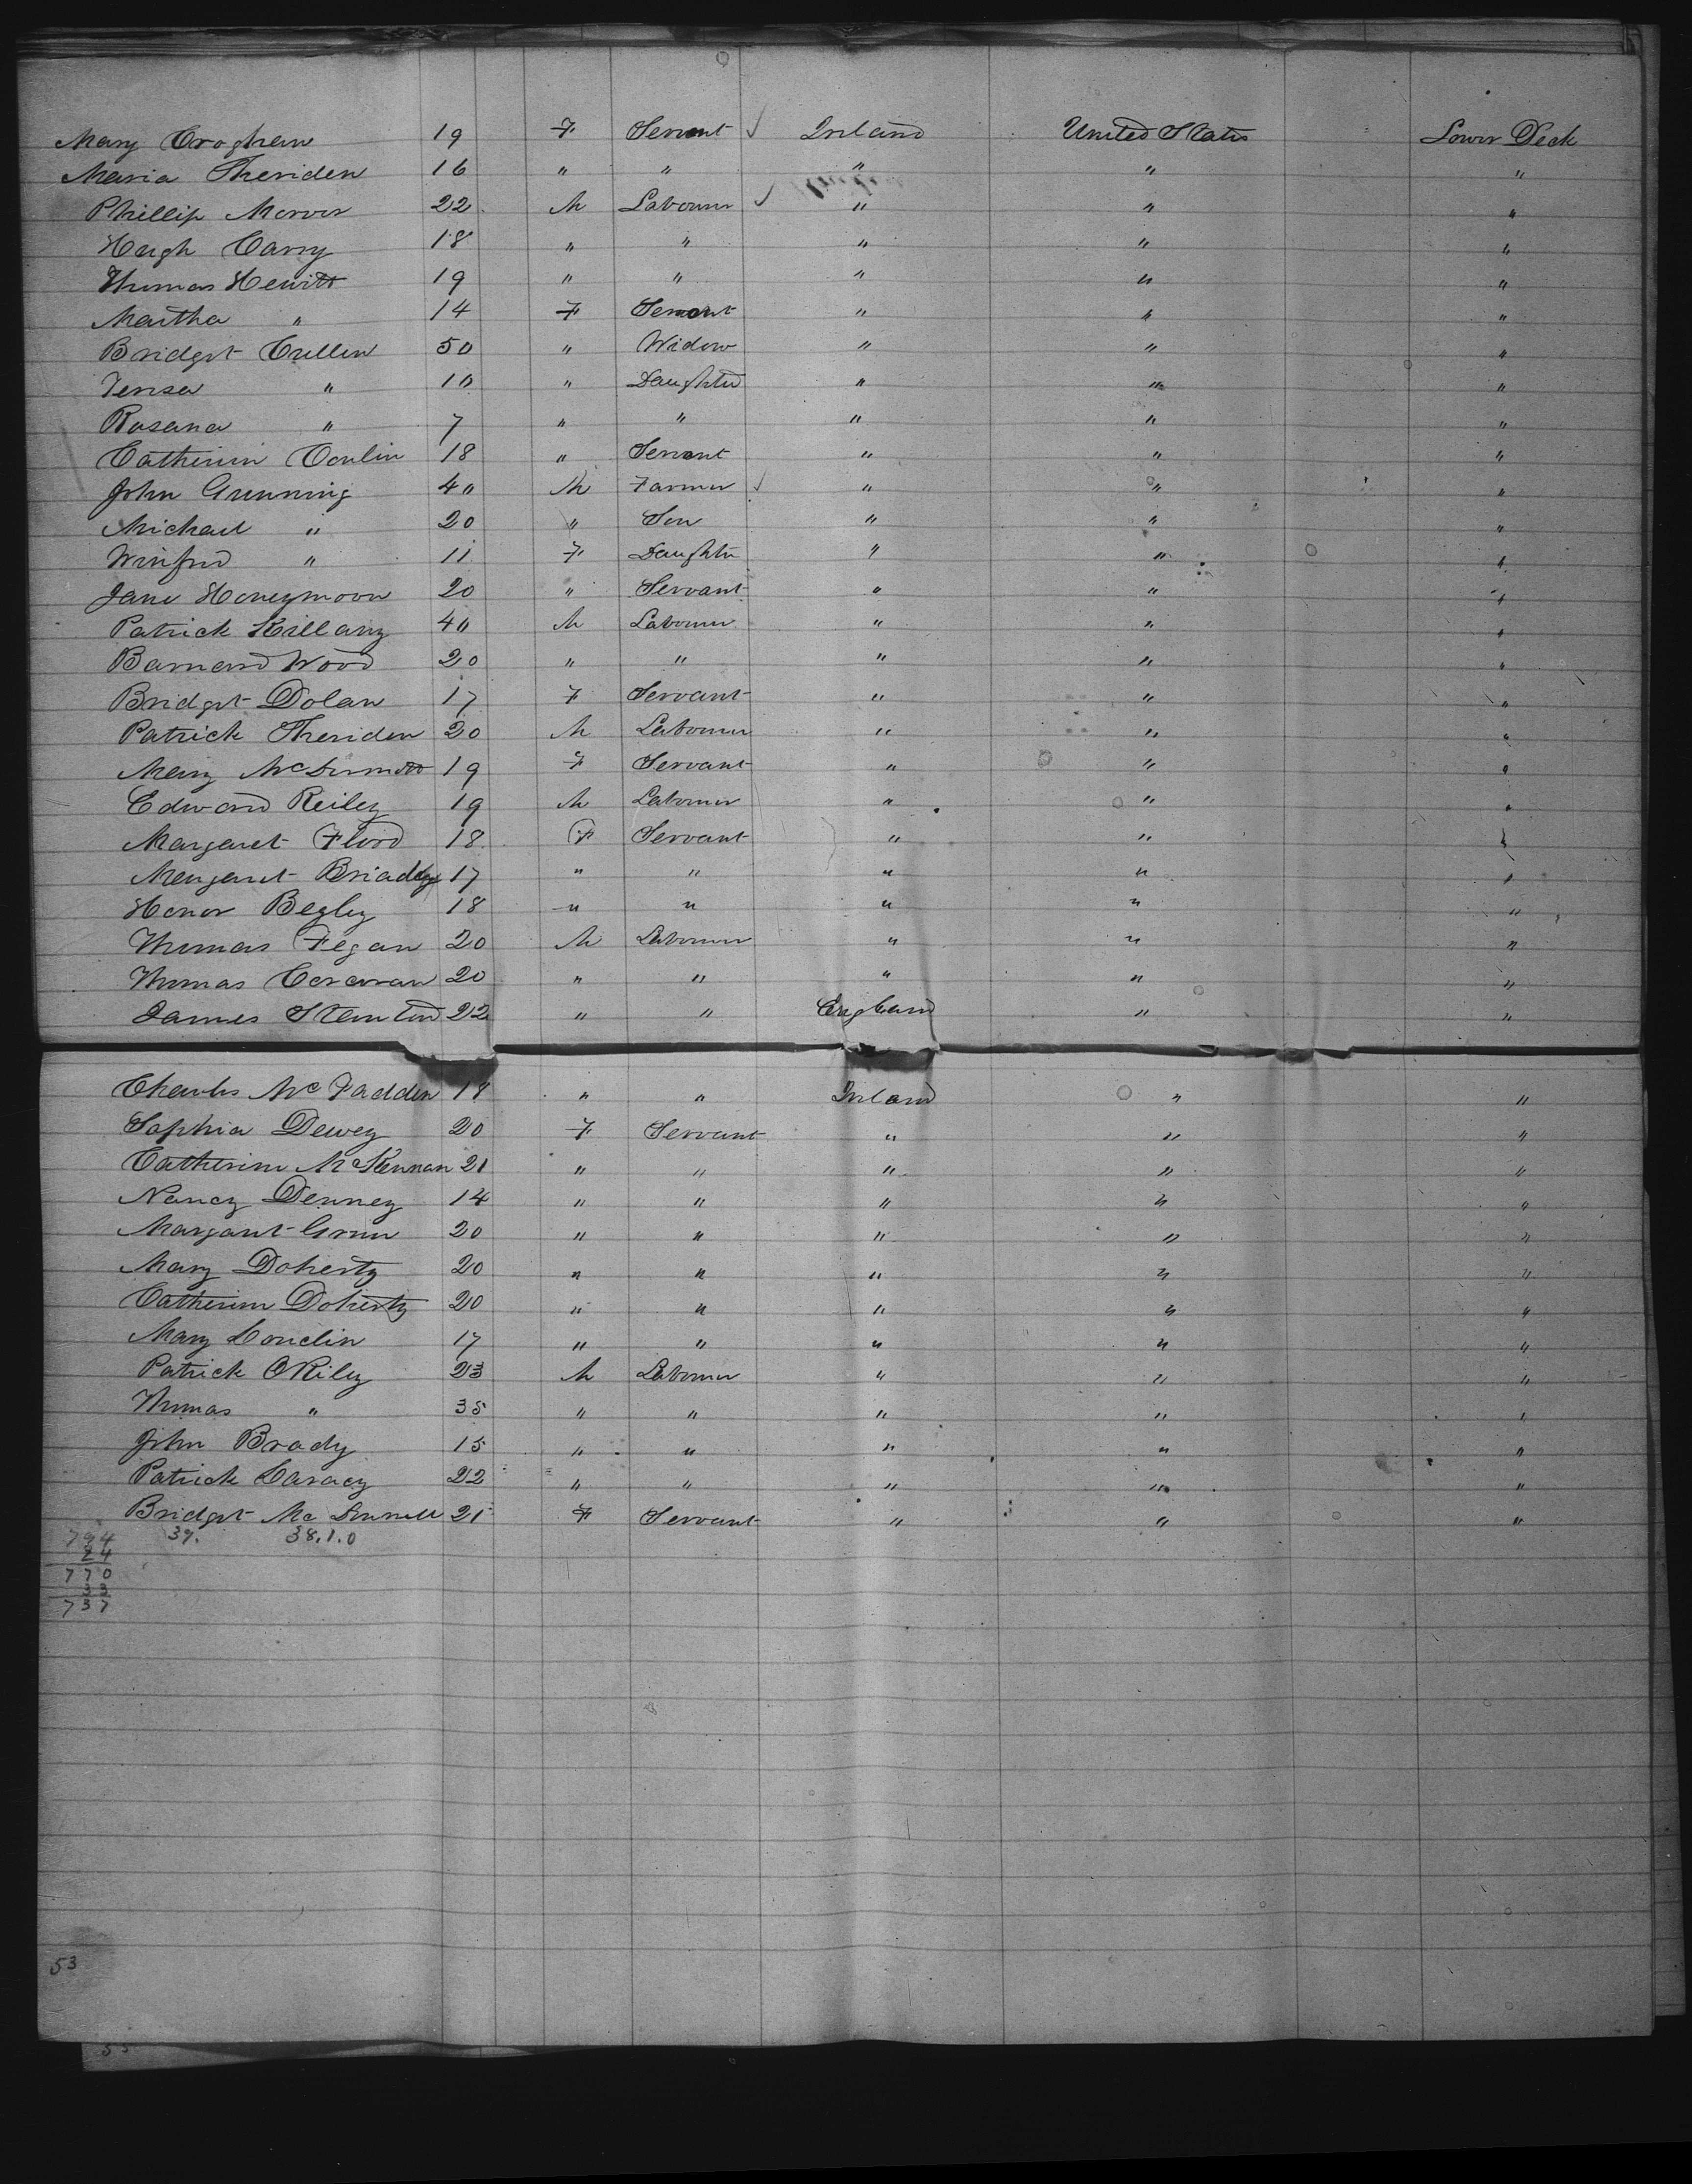 Mary Croghan 19 F Servant ✓ Ireland United States Lower Deck
Maria Sheriden 16 " " " " "
Phillip 22 M Labourer ✓ " " "
Hugh Carry 18 " " " " "
Thomas Hewitt 19 " " " " "
Martha " 14 F Servant " " "
Bridget Cullen 50 " Widow " " "
Teresa " 10 " Daughter " " "
Rosana " 7 " " " " "
Catherine Conlin 18 " Servant " " "
John Gunning 40 M Farmer ✓ " " "
Michael " 20 " Son " " "
Winifred " 11 F Daughter " " "
Jane Honeymoon 20 " Servant " " "
Patrick Killany 40 M Labourer " " "
Barnard Wood 20 " " " " "
Bridget Dolan 17 F Servant " " "
Patrick Sheriden 20 M Labourer " " "
Mary McDermott 19 F Servant " " "
Edward Reiley 19 M Labourer " " "
Margaret Flood 18 F Servant " " "
Margaret 17 " " " " "
Honor Begley 18 " " " " "
Thomas Fegan 20 M Labourer " " "
Thomas Corcoran 20 " " " " "
James Stanton 22 " " England " "
Charles McFadden 18 " " Ireland " "
Sophia Dewey 20 F Servant " " "
Catherine McKennan 21 " " " " "
Nancy Denney 14 " " " " "
Margaret Green 20 " " " " "
Mary Doherty 20 " " " " "
Catherine Doherty 20 " " " " "
Mary Conclin 17 " " " " "
Patrick ORiley 23 M Labourer " " "
Thomas " 35 " " " " "
John Brady 15 " " " " "
Patrick 22 " " " " "
Bridget 21 F Servant " " "
794 39. 38.1.0
24
770
33
737
53